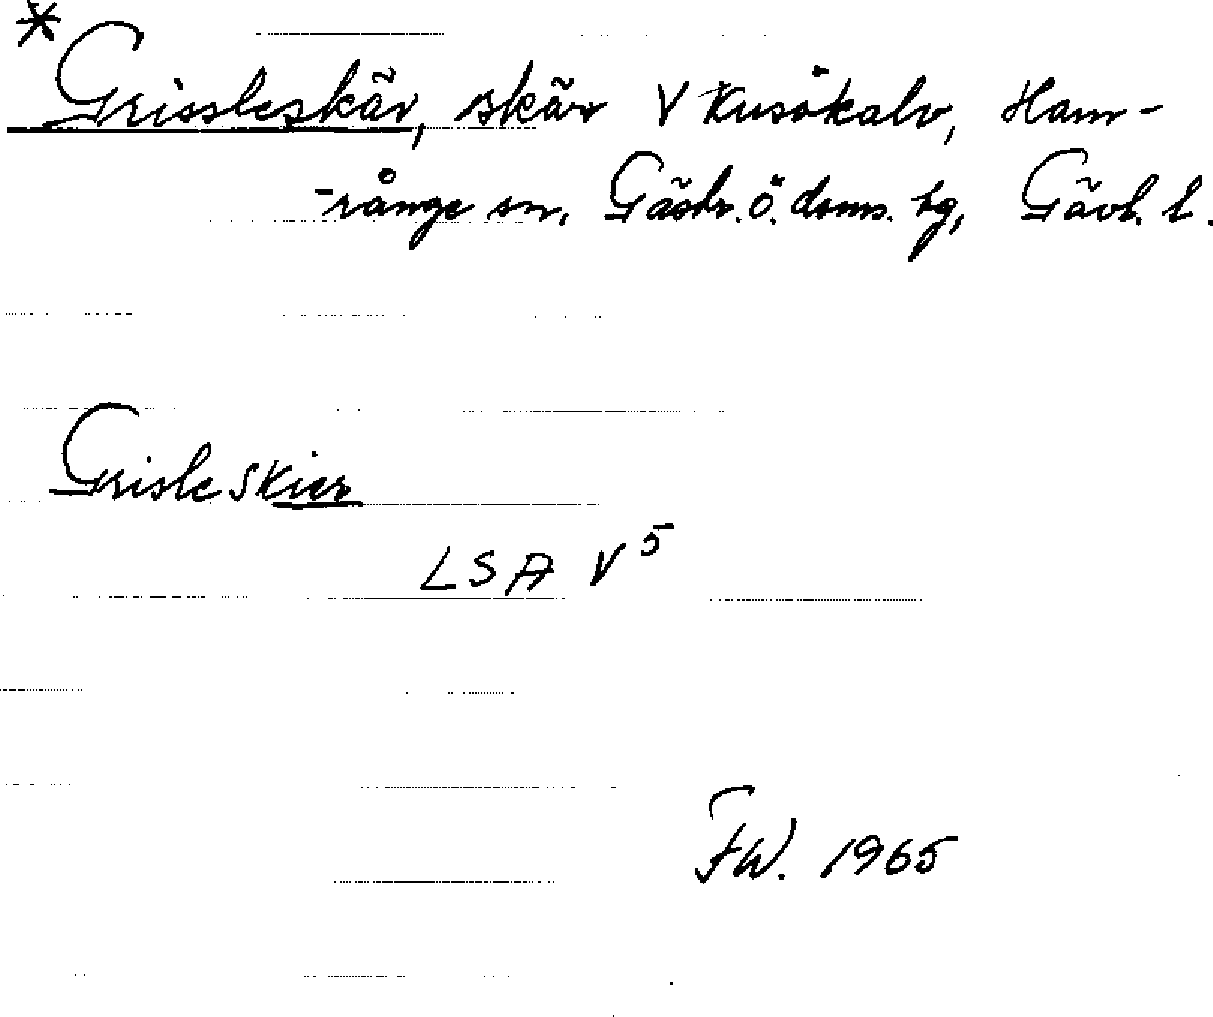 * Grissleskär, skär V Kusökalv, Ham-
-rånge sn, Gästr. ö. doms. tg, Gävl. l.
Grisle skier
LSA V 5
FW. 1965